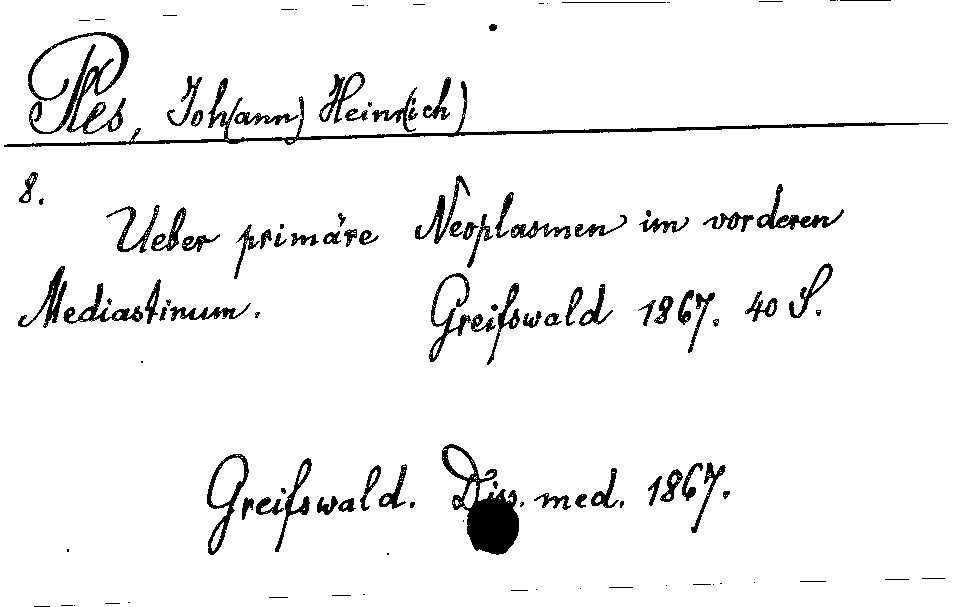 Ples, Joh(ann) Heinr(ich)
8.
Ueber primäre Neoplasmen im vorderen
Mediastinum. Greifswald 1867. 40 S.
Greifswald. Diss. med. 1867.